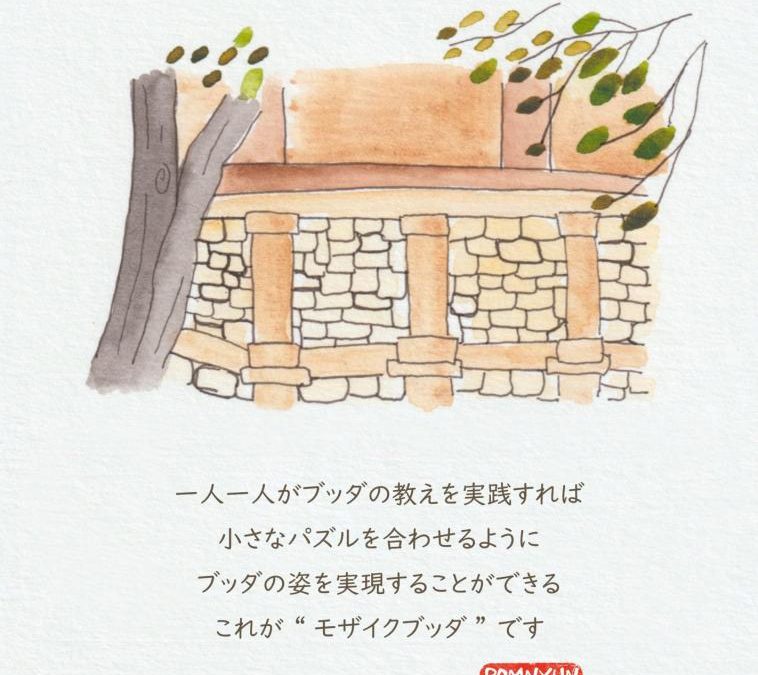 一人一人がブッダの教えを実践すれば
小さなパズルを合わせるように
ブッダの姿を実現することができる
これが “ モザイクブッダ ” です
POMNYUN